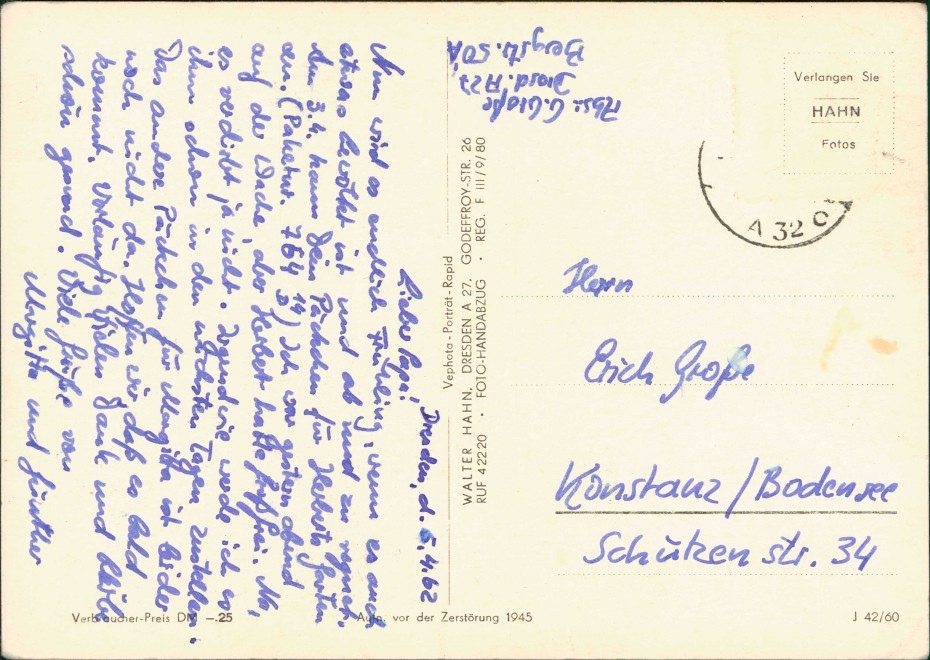 Dresden, d. 5.4.62
Lieber Papi!
Nun wird es endlich Frühling, wenn es auch
etwas bewölkt ist und ab und zu regnet.
Am 3.4. kam Dein Päckchen für Herberts Garten
an. (Paketnr. 764 19) Ich war gestern abend
auf der Wache, der Herbert hatte frei. Na,
es verdirbt ja nicht. Irgendwie werde ich es
ihm schon in den nächsten Tagen zustellen.
Das andere Päckchen für Margitta ist leider
noch nicht da. Hoffen wir daß es bald
kommt. Vorläufig vielen Dank und bleib
schön gesund. Viele Grüße von
Margitta und Günther
Abs.: G. Große
Dresd. A 27
Bergstr. 50A
Vephota - Porträt - Rapid
WALTER HAHN, DRESDEN A 27, GODEFFROY-STR. 26
RUF 42220 • FOTO-HANDABZUG • REG. F III/9/80
Verlangen Sie
HAHN
Fotos
A 32 C
Herrn
Erich Große
Konstanz / Bodensee
Schützenstr. 34
Verbraucher-Preis DM —.25
Aufn. vor der Zerstörung 1945
J 42/60